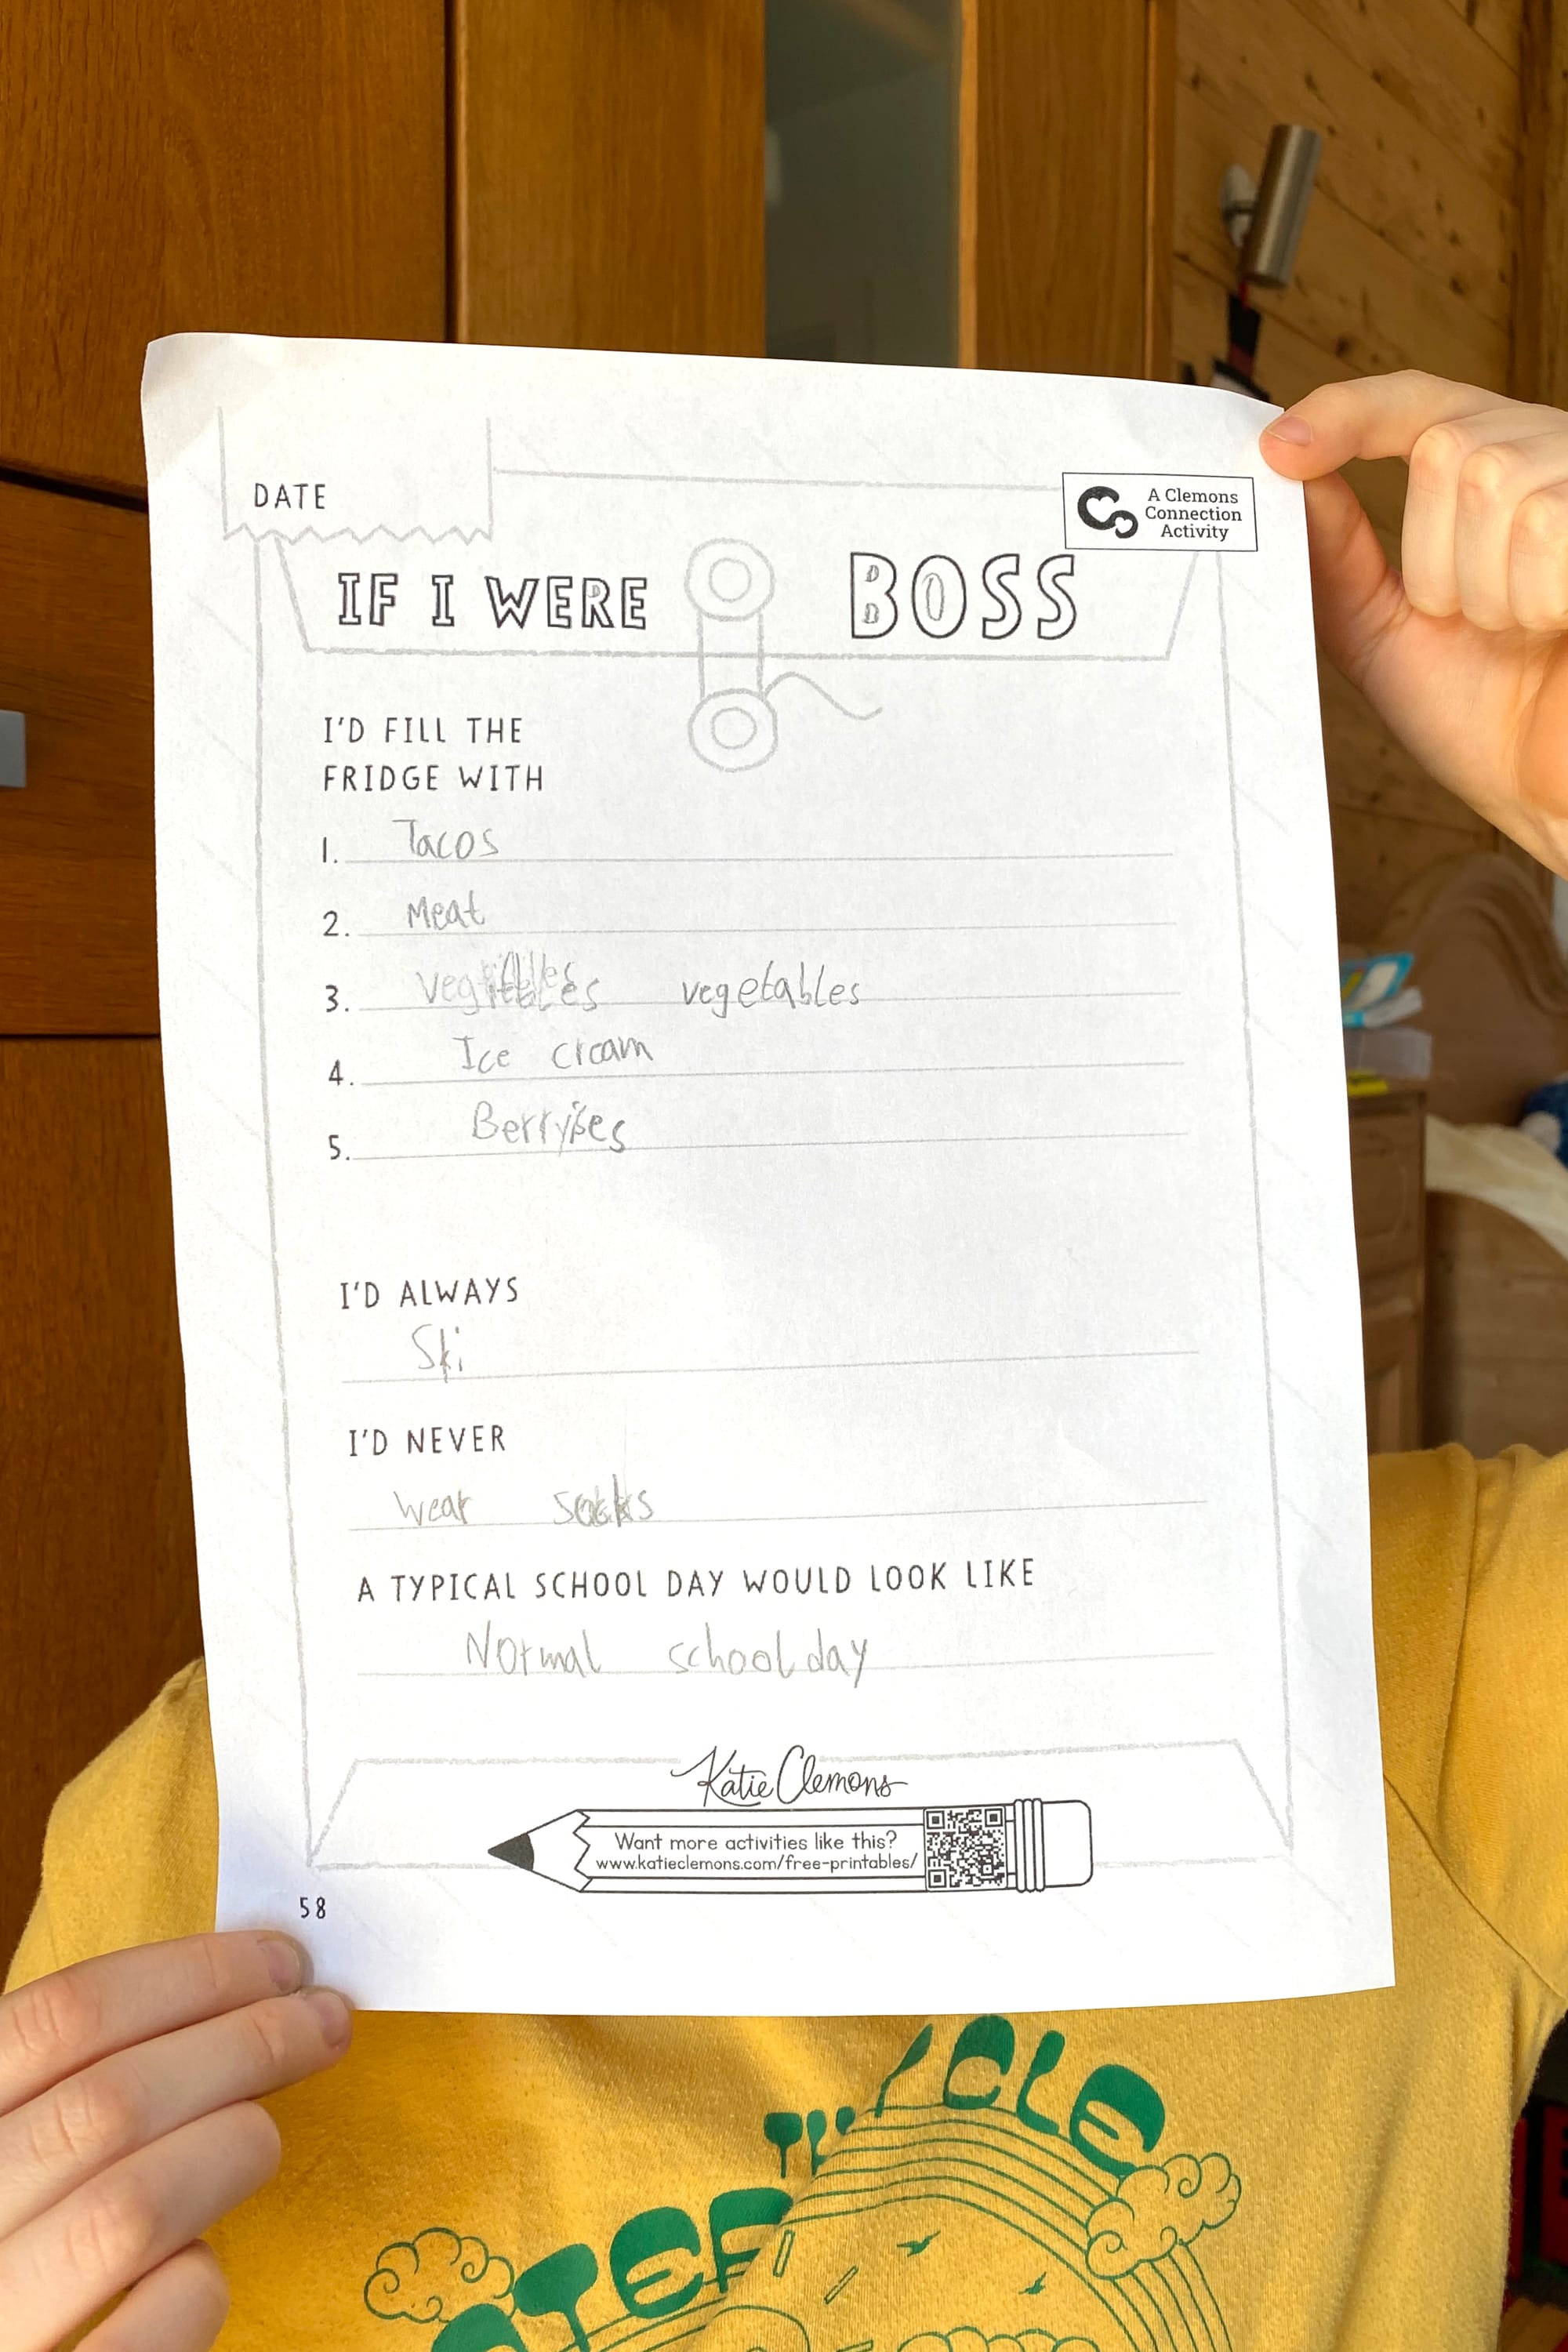 DATE
A Clemons
Connection
Activity
IF I WERE BOSS
I'D FILL THE
FRIDGE WITH
1. Tacos
2. Meat
3. vegetables
4. Ice cream
5. Berryies
I'D ALWAYS
Ski
I'D NEVER
Wear socks
A TYPICAL SCHOOL DAY WOULD LOOK LIKE
Normal school day
Katie Clemons
Want more activities like this?
www.katieclemons.com/free-printables/
58